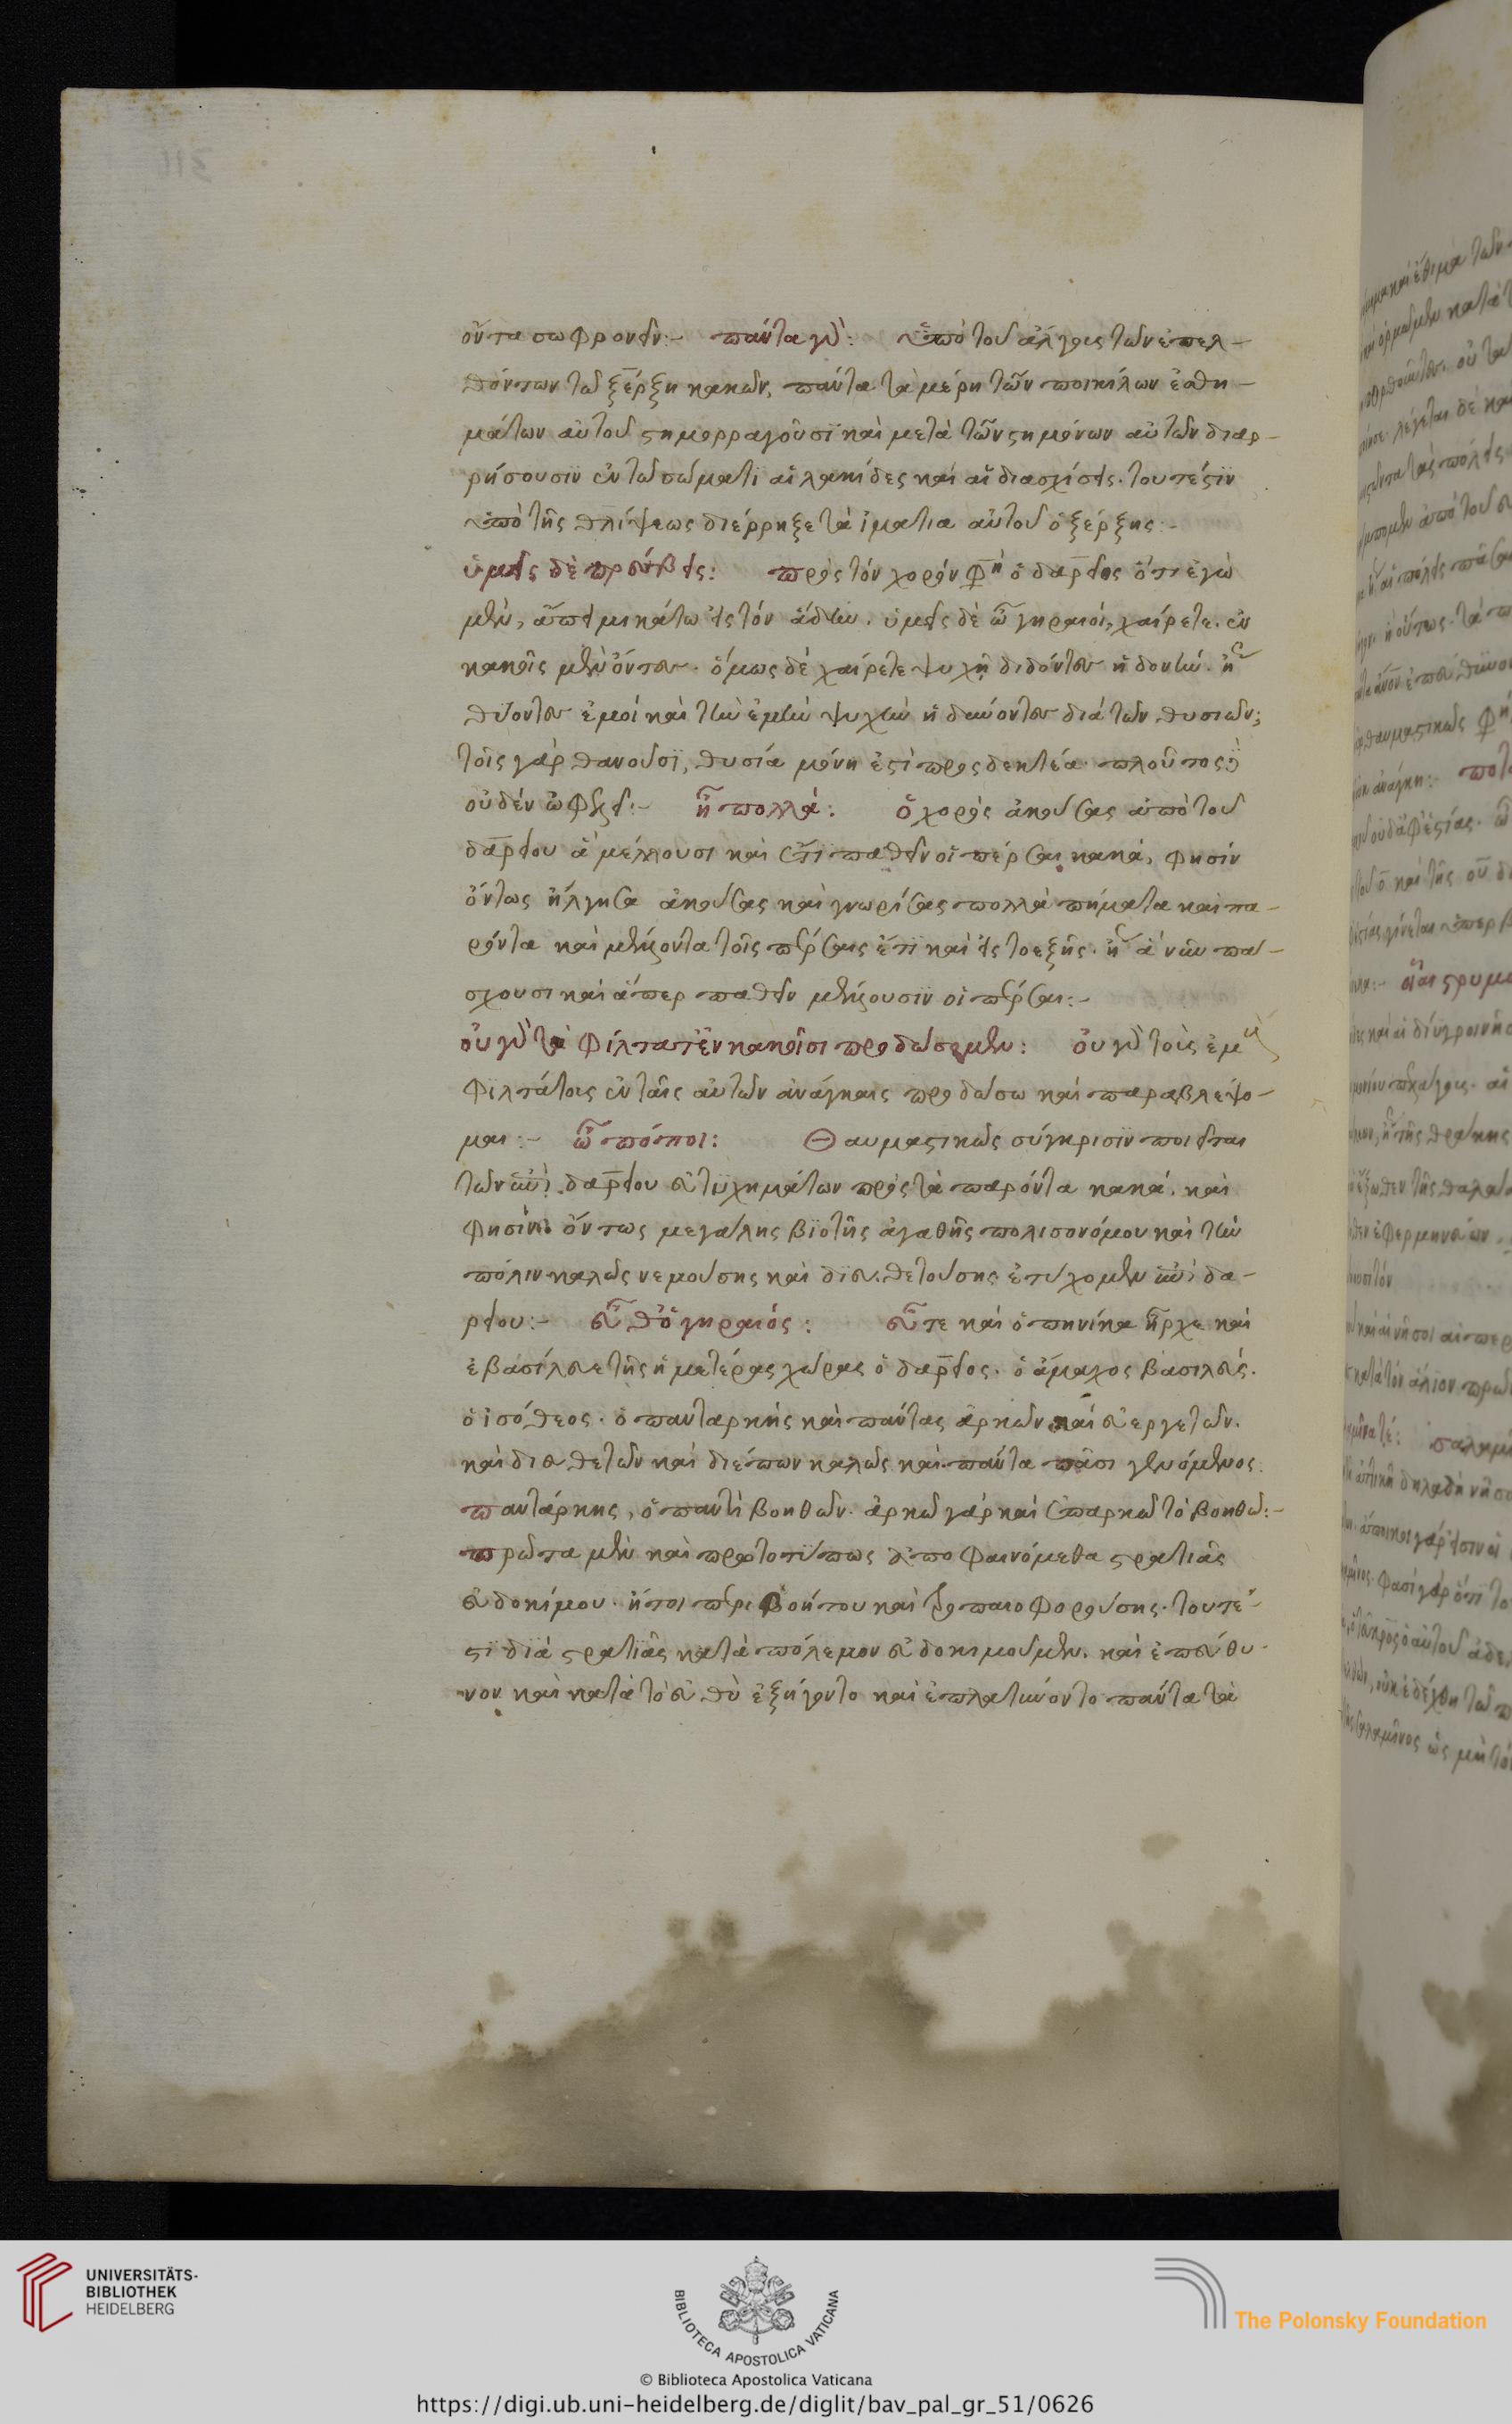 ὄντα σωφρονεῖν:- πάντα γὰρ: ὑπὸ τοῦ ἄλγους τῶν ἐπελ-
θόντων τῷ ξέρξῃ κακῶν, πάντα τὰ μέρη τῶν ποικίλων ἐσθη-
μάτων αὐτοῦ στημορραγοῦσι καὶ μετὰ τῶν στημόνων αὐτῶν διαρ-
ρήσουσιν ἐν τῷ σώματι αἱ λακίδες καὶ αἱ διασχίσεις. τουτέστιν
ὑπὸ τῆς θλίψεως διέρρηξε τὰ ἱμάτια αὐτοῦ ὁ ξέρξης:-
ὑμεῖς δὲ πρέσβεις: πρὸς τὸν χορόν φη ὁ δαρεῖος ὅτι ἐγὼ
μὲν, ἄπειμι κάτω εἰς τὸν ἅδην. ὑμεῖς δὲ ὦ γηραιοί, χαίρετε. ἐν
κακοῖς μὲν ὄντες. ὅμως δὲ χαίρετε ψυχῇ διδόντες ἡδονήν. ἢ
θύοντες ἐμοί καὶ τὴν ἐμὴν ψυχὴν ἡδύνοντες διὰ τῶν θυσιῶν;
τοῖς γὰρ θανοῦσι, θυσία μόνη ἐστὶ προσδεκτέα. πλοῦτος δὲ
οὐδὲν ὠφελεῖ:- ἦ πολλά: ὁ χορὸς ἀκούσας ἀπὸ τοῦ
δαρείου ἃ μέλλουσι καὶ ἔτι παθεῖν οἱ πέρσαι κακά, φησίν
ὄντως ἤλγησα ἀκούσας καὶ γνωρίσας πολλὰ πήματα καὶ πα-
ρόντα καὶ μέλλοντα τοῖς πέρσαις ἔτι καὶ εἰς τοεξῆς. ἢ ἃ νῦν πά-
σχουσι καὶ ἅπερ παθεῖν μέλλουσιν οἱ πέρσαι:-
οὐ γὰρ τὰ φίλτατ' ἐν κακοῖσι προδώσομεν: οὐ γὰρ τοῖς ἐμοῖς
φιλτάτοις ἐν ταῖς αὐτῶν ἀνάγκαις προδώσω καὶ παραβλέψο-
μαι:- ὦ πόποι: Θαυμαστικῶς σύγκρισιν ποιεῖται
τῶν ἐπὶ δαρείου εὐτυχημάτων πρὸς τὰ παρόντα κακά. καὶ
φησίν ὄντως μεγάλης βιοτῆς ἀγαθῆς πολισονόμου καὶ τὴν
πόλιν καλῶς νεμούσης καὶ διευθετούσης ἐτύχομεν ἐπὶ δα-
ρείου:- εὖθ' ὁ γηραιός: εὖτε καὶ ὁπηνίκα ἦρχε καὶ
ἐβασίλευε τῆς ἡμετέρας χώρας ὁ δαρεῖος. ὁ ἄμαχος βασιλεύς.
ὁ ἰσόθεος. ὁ πανταρκής καὶ πάντας ἀρκῶν καὶ εὐεργετῶν.
καὶ διευθετῶν καὶ διέπων καλῶς καὶ πάντα πᾶσι γενόμενος.
πανταρκης, ὁ παντὶ βοηθῶν. ἀρκῶ γάρ καὶ ἐπαρκῶ τὸ βοηθῶ:-
πρῶτα μὲν καὶ πρωτοτύπως ἀποφαινόμεθα στρατιᾶς
εὐδοκίμου. ἤτοι περιβοήτου καὶ τροπαιοφορούσης. τουτέ-
στι διὰ στρατιᾶς κατὰ πόλεμον εὐδοκιμοῦμεν. καὶ ἐπεύθυ-
νον καὶ κατὰ τὸ εὐθὺ ἐξηγοντο καὶ ἐπλατύνοντο πάντα τὰ
UNIVERSITÄTS-
BIBLIOTHEK
HEIDELBERG
BIBLIOTECA APOSTOLICA VATICANA
© Biblioteca Apostolica Vaticana
The Polonsky Foundation
https://digi.ub.uni-heidelberg.de/diglit/bav_pal_gr_51/0626